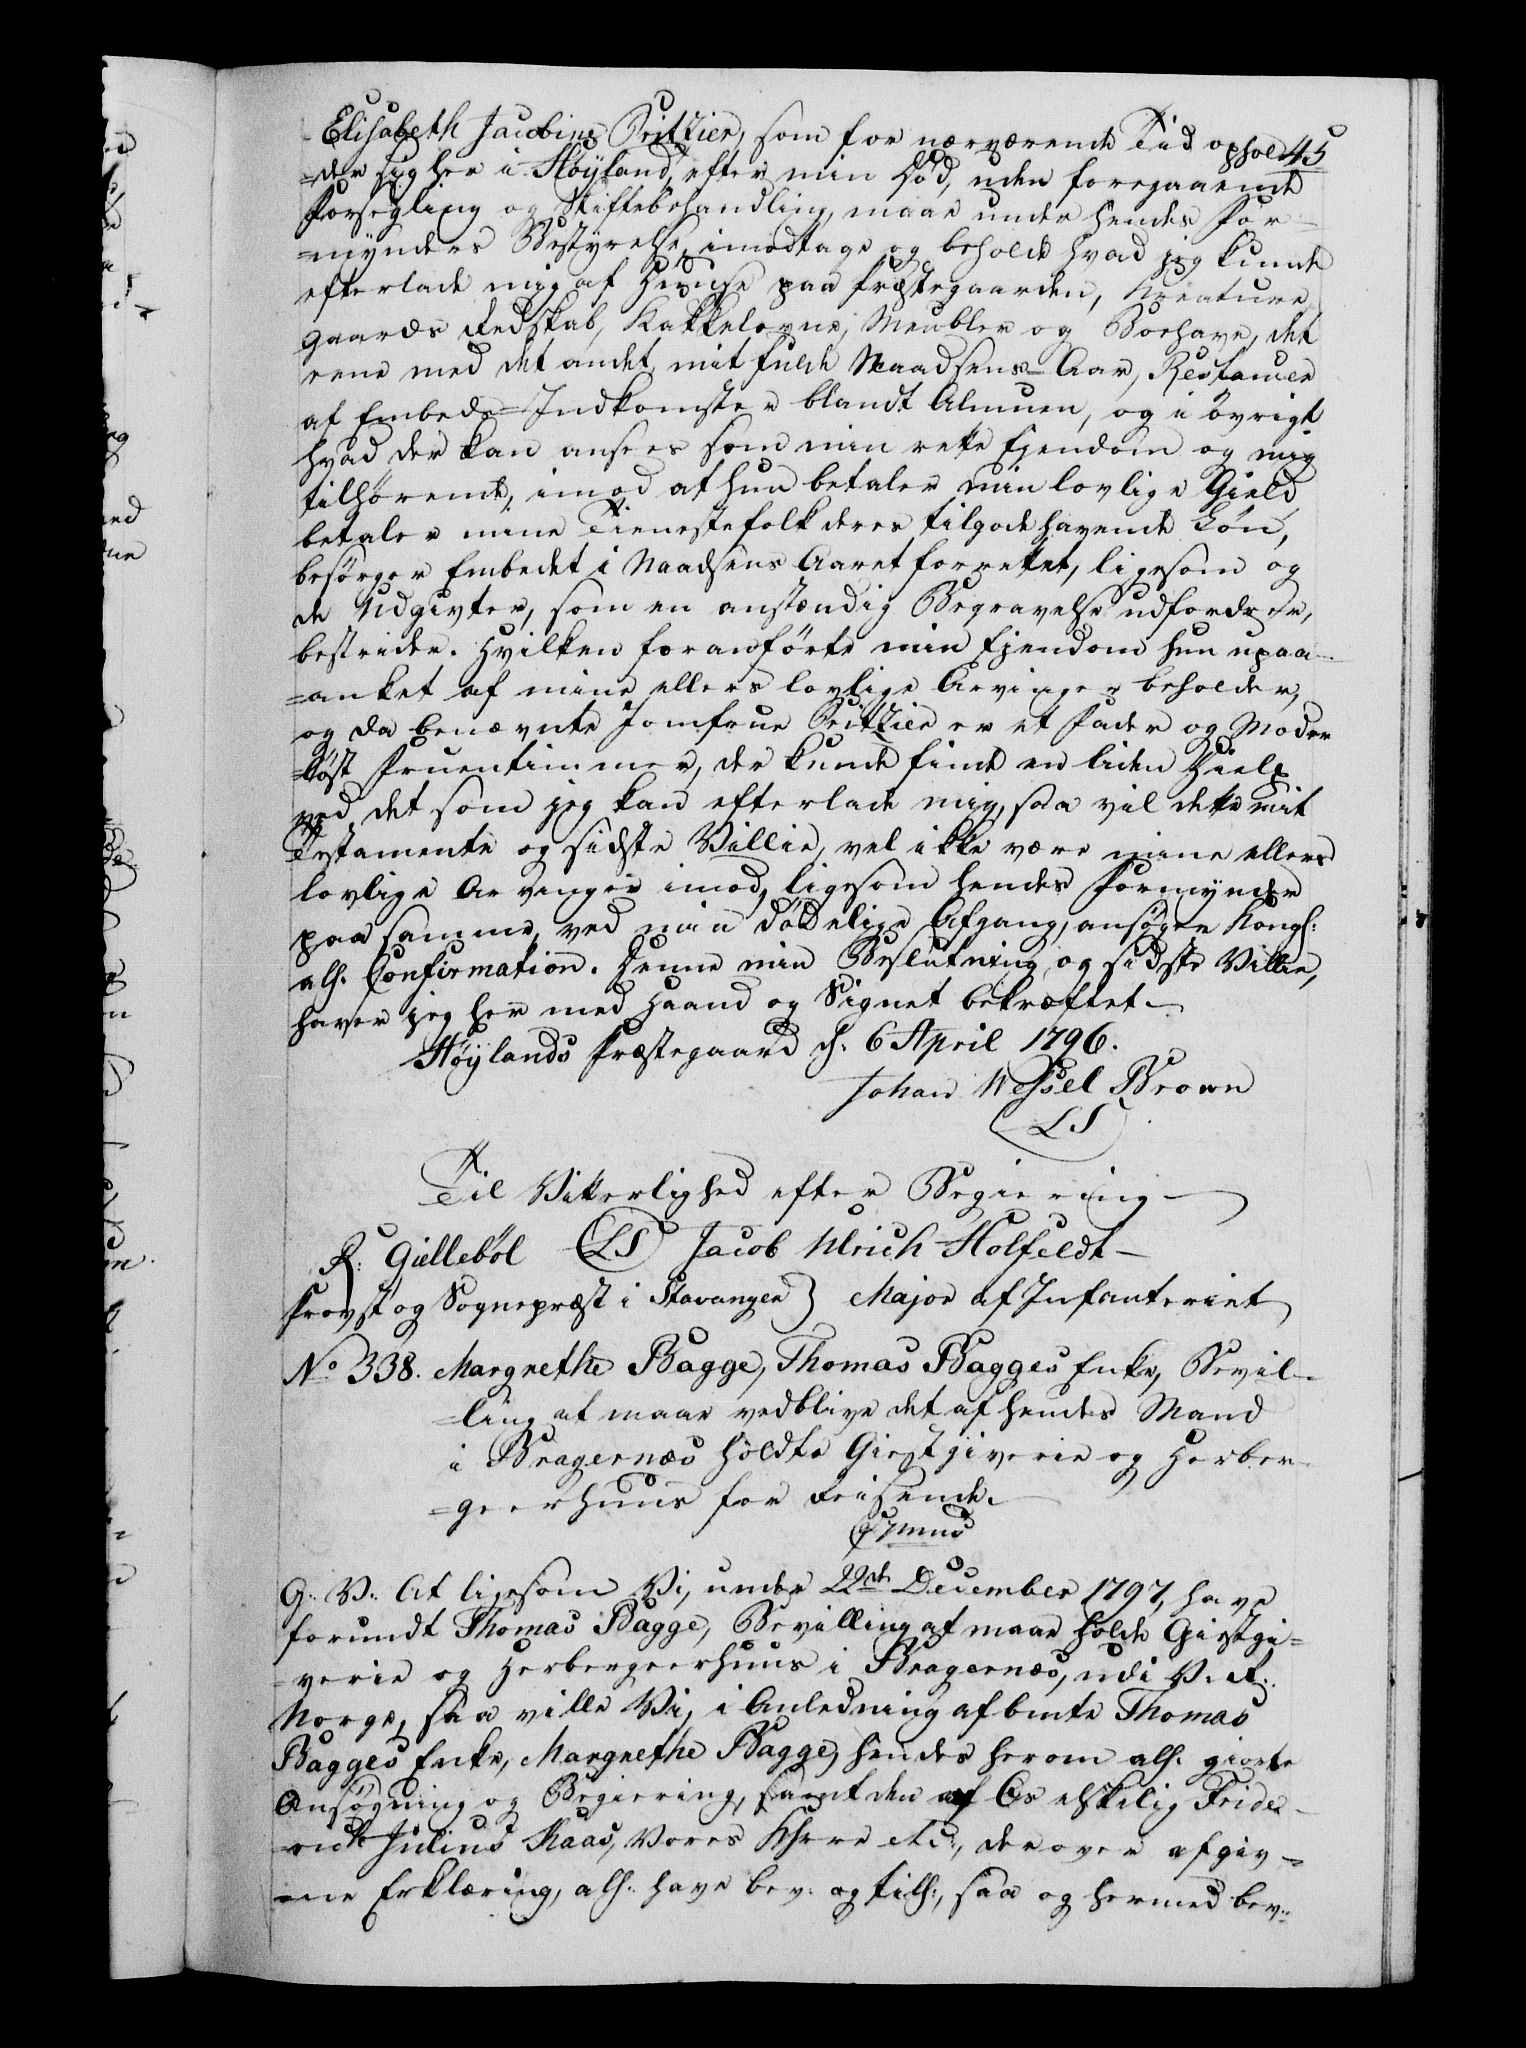 45
Elisabeth Jacobine Pritzier, som for nærværende Tid ophol-
=der sig her i Høyland, efter min Død, uden foregaaende
Forsegling og Skiftebehandling, maae under hendes For-
=mynders Bestyrelse, imodtage og beholde hvad jeg kunde
efterlade mig af Huuse paa Præstegaarden, Kreature,
Gaards Redskab, Kakkelovne, Meubler og Boehave, det
eene med det andet, mit fulde Naadsens-Aar, Restancer
af Embeds-Indkomster blandt Almuen, og i øvrigt
hvad der kan ansees som min rette Ejendom og mig
tilhørende, imod at hun betaler min lovlige Gield
betaler mine Tienestefolk deres tilgodehavende Løn,
besørger Embedet i Naadsens Aaret forrettet, ligesom og
de Udgivter, som en anstændig Begravelse udfordrer,
bestrider. Hvilken foranførte min Ejendom hun upaa-
=anket af mine ellers lovlige Arvinger beholder,
og da benævnte Jomfrue Pritzier er et Fader og Moder
=løst Fruentimmer, der kunde finde en liden Hielp
ved det som jeg kan efterlade mig, saa vil dette mit
Testamente og sidste Villie, vel ikke være mine ellers
lovlige Arvinger imod, ligesom hendes Formynder
paa samme, ved min dødelige Afgang, ansøger Kongl:
alh. Confirmation. Denne min Beslutning og sidste Villie,
haver jeg her med Haand og Signet bekræftet.
Høylands Præstegaard d. 6 April 1796.
Johan Wessel Brown
(LS)
Til Vitterlighed efter Begiering
R: Gielleböl (LS) Jacob Ulrich Holfeldt
Provst og Sognepræst i Stavanger) Major af Infanteriet
No 338. Margrethe Bagge, Thomas Bagges Enke, Bevil-
=ling at maae vedblive det af hendes Mand
i Bragernæs holdte Giestgiverie og Herber-
=geerhuus for Reisende.
G. V. At ligesom Vi, under 22de December 1797, have
forundt Thomas Bagge, Bevilling at maae holde Giestgi=
=verie og Herbergeerhuus i Bragernæs, udi V. R.
Norge, saa ville Vi, i Anledning af bmte Thomas
Bagges Enke, Margrethe Bagge, hendes herom alh. giorte
Ansøgning og Begiering, samt den af Os elskelig Fride-
=rich Julius Kaas, Vores Khere etc:, derover afgiv-
=ne Erklæring, alh. have bev: og tilh:, saa og hermed bev: